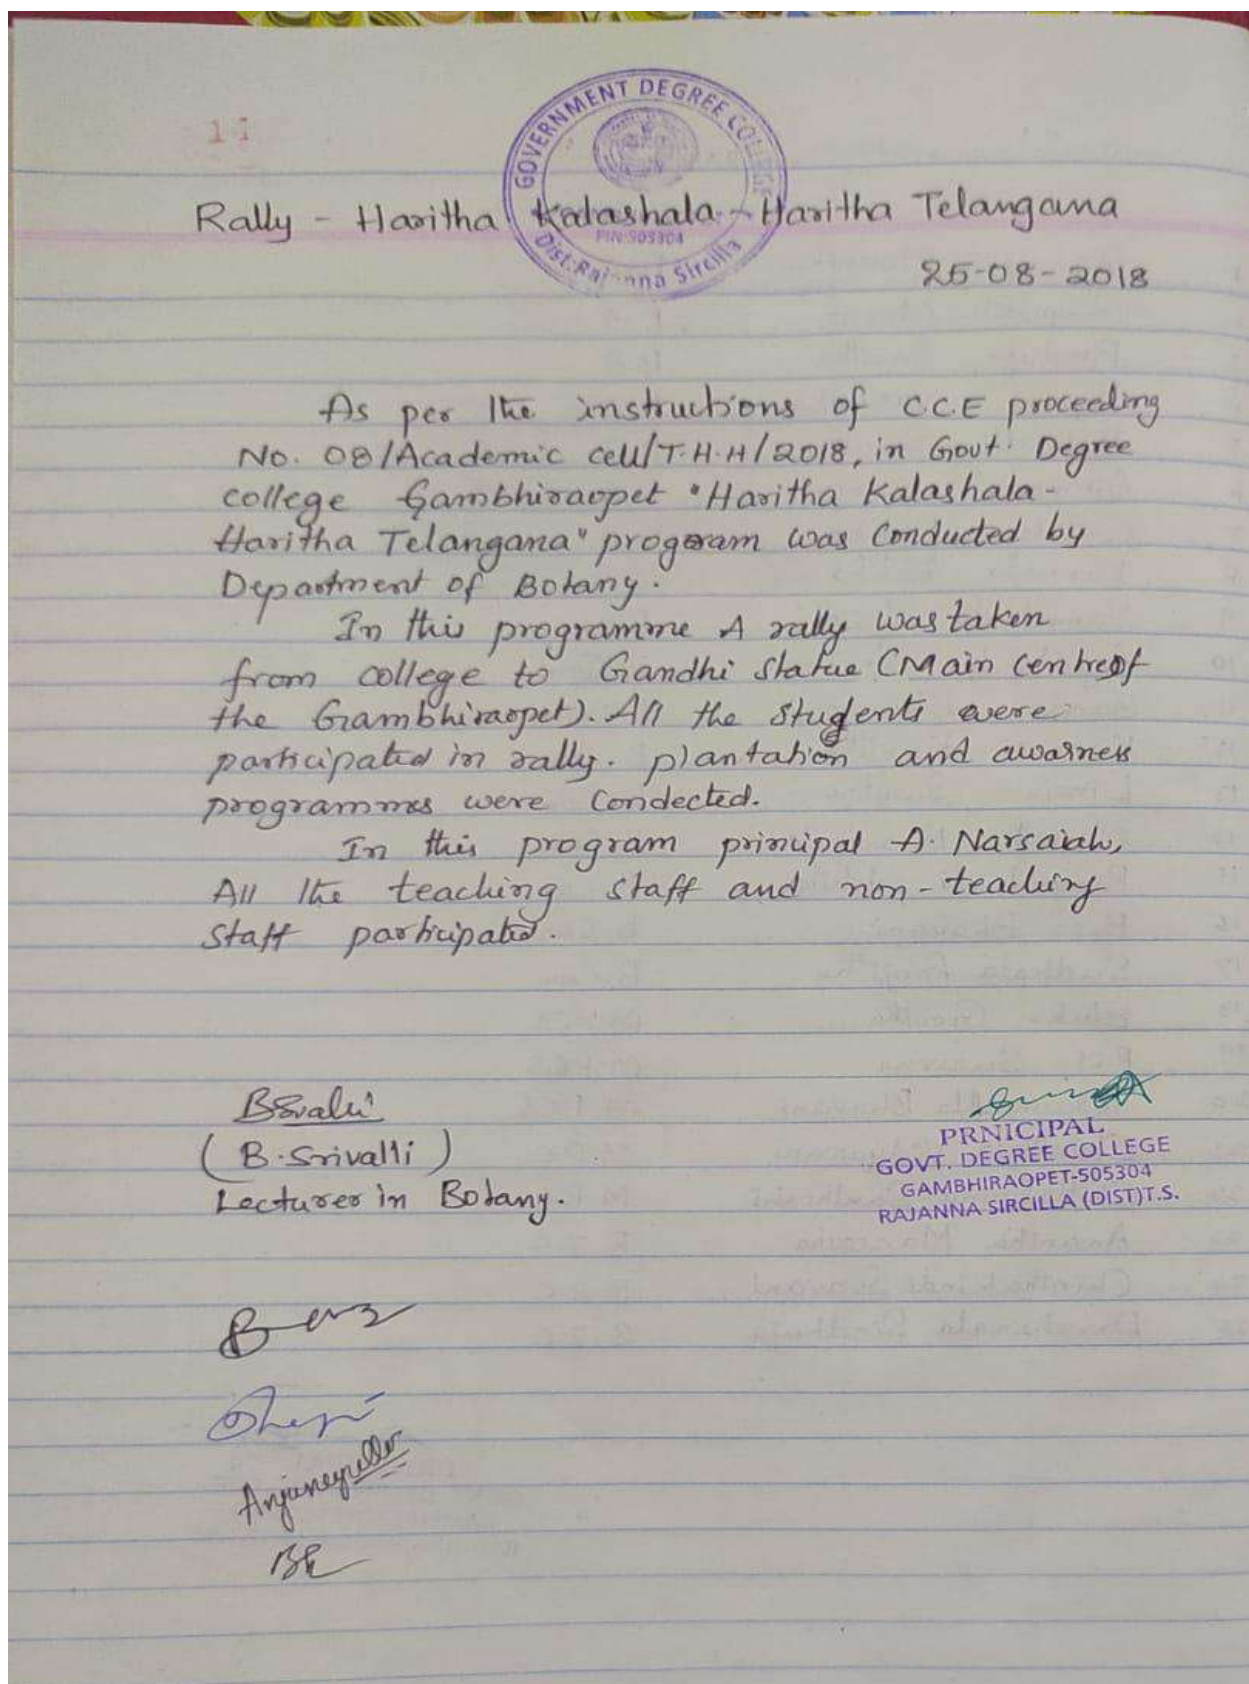 11
GOVERNMENT DEGREE COLLEGE
PIN:505304
Dist:Rajanna Sircilla
Rally - Haritha Kalashala - Haritha Telangana
25-08-2018
As per the instructions of C.C.E proceeding
No. 08/Academic cell/T.H.H/2018, in Govt. Degree
college Gambhiraopet "Haritha Kalashala -
Haritha Telangana" program was Conducted by
Department of Botany.
In this programme A rally was taken
from college to Gandhi Statue (Main centre of
the Gambhiraopet). All the students were
participated in rally. plantation and awarness
programmes were Condected.
In this program principal A. Narsaiah,
All the teaching staff and non-teaching
staff participated.
(B. Srivalli)
Lecturer in Botany.
PRNICIPAL
GOVT. DEGREE COLLEGE
GAMBHIRAOPET-505304
RAJANNA SIRCILLA (DIST)T.S.
Anjaneyullu